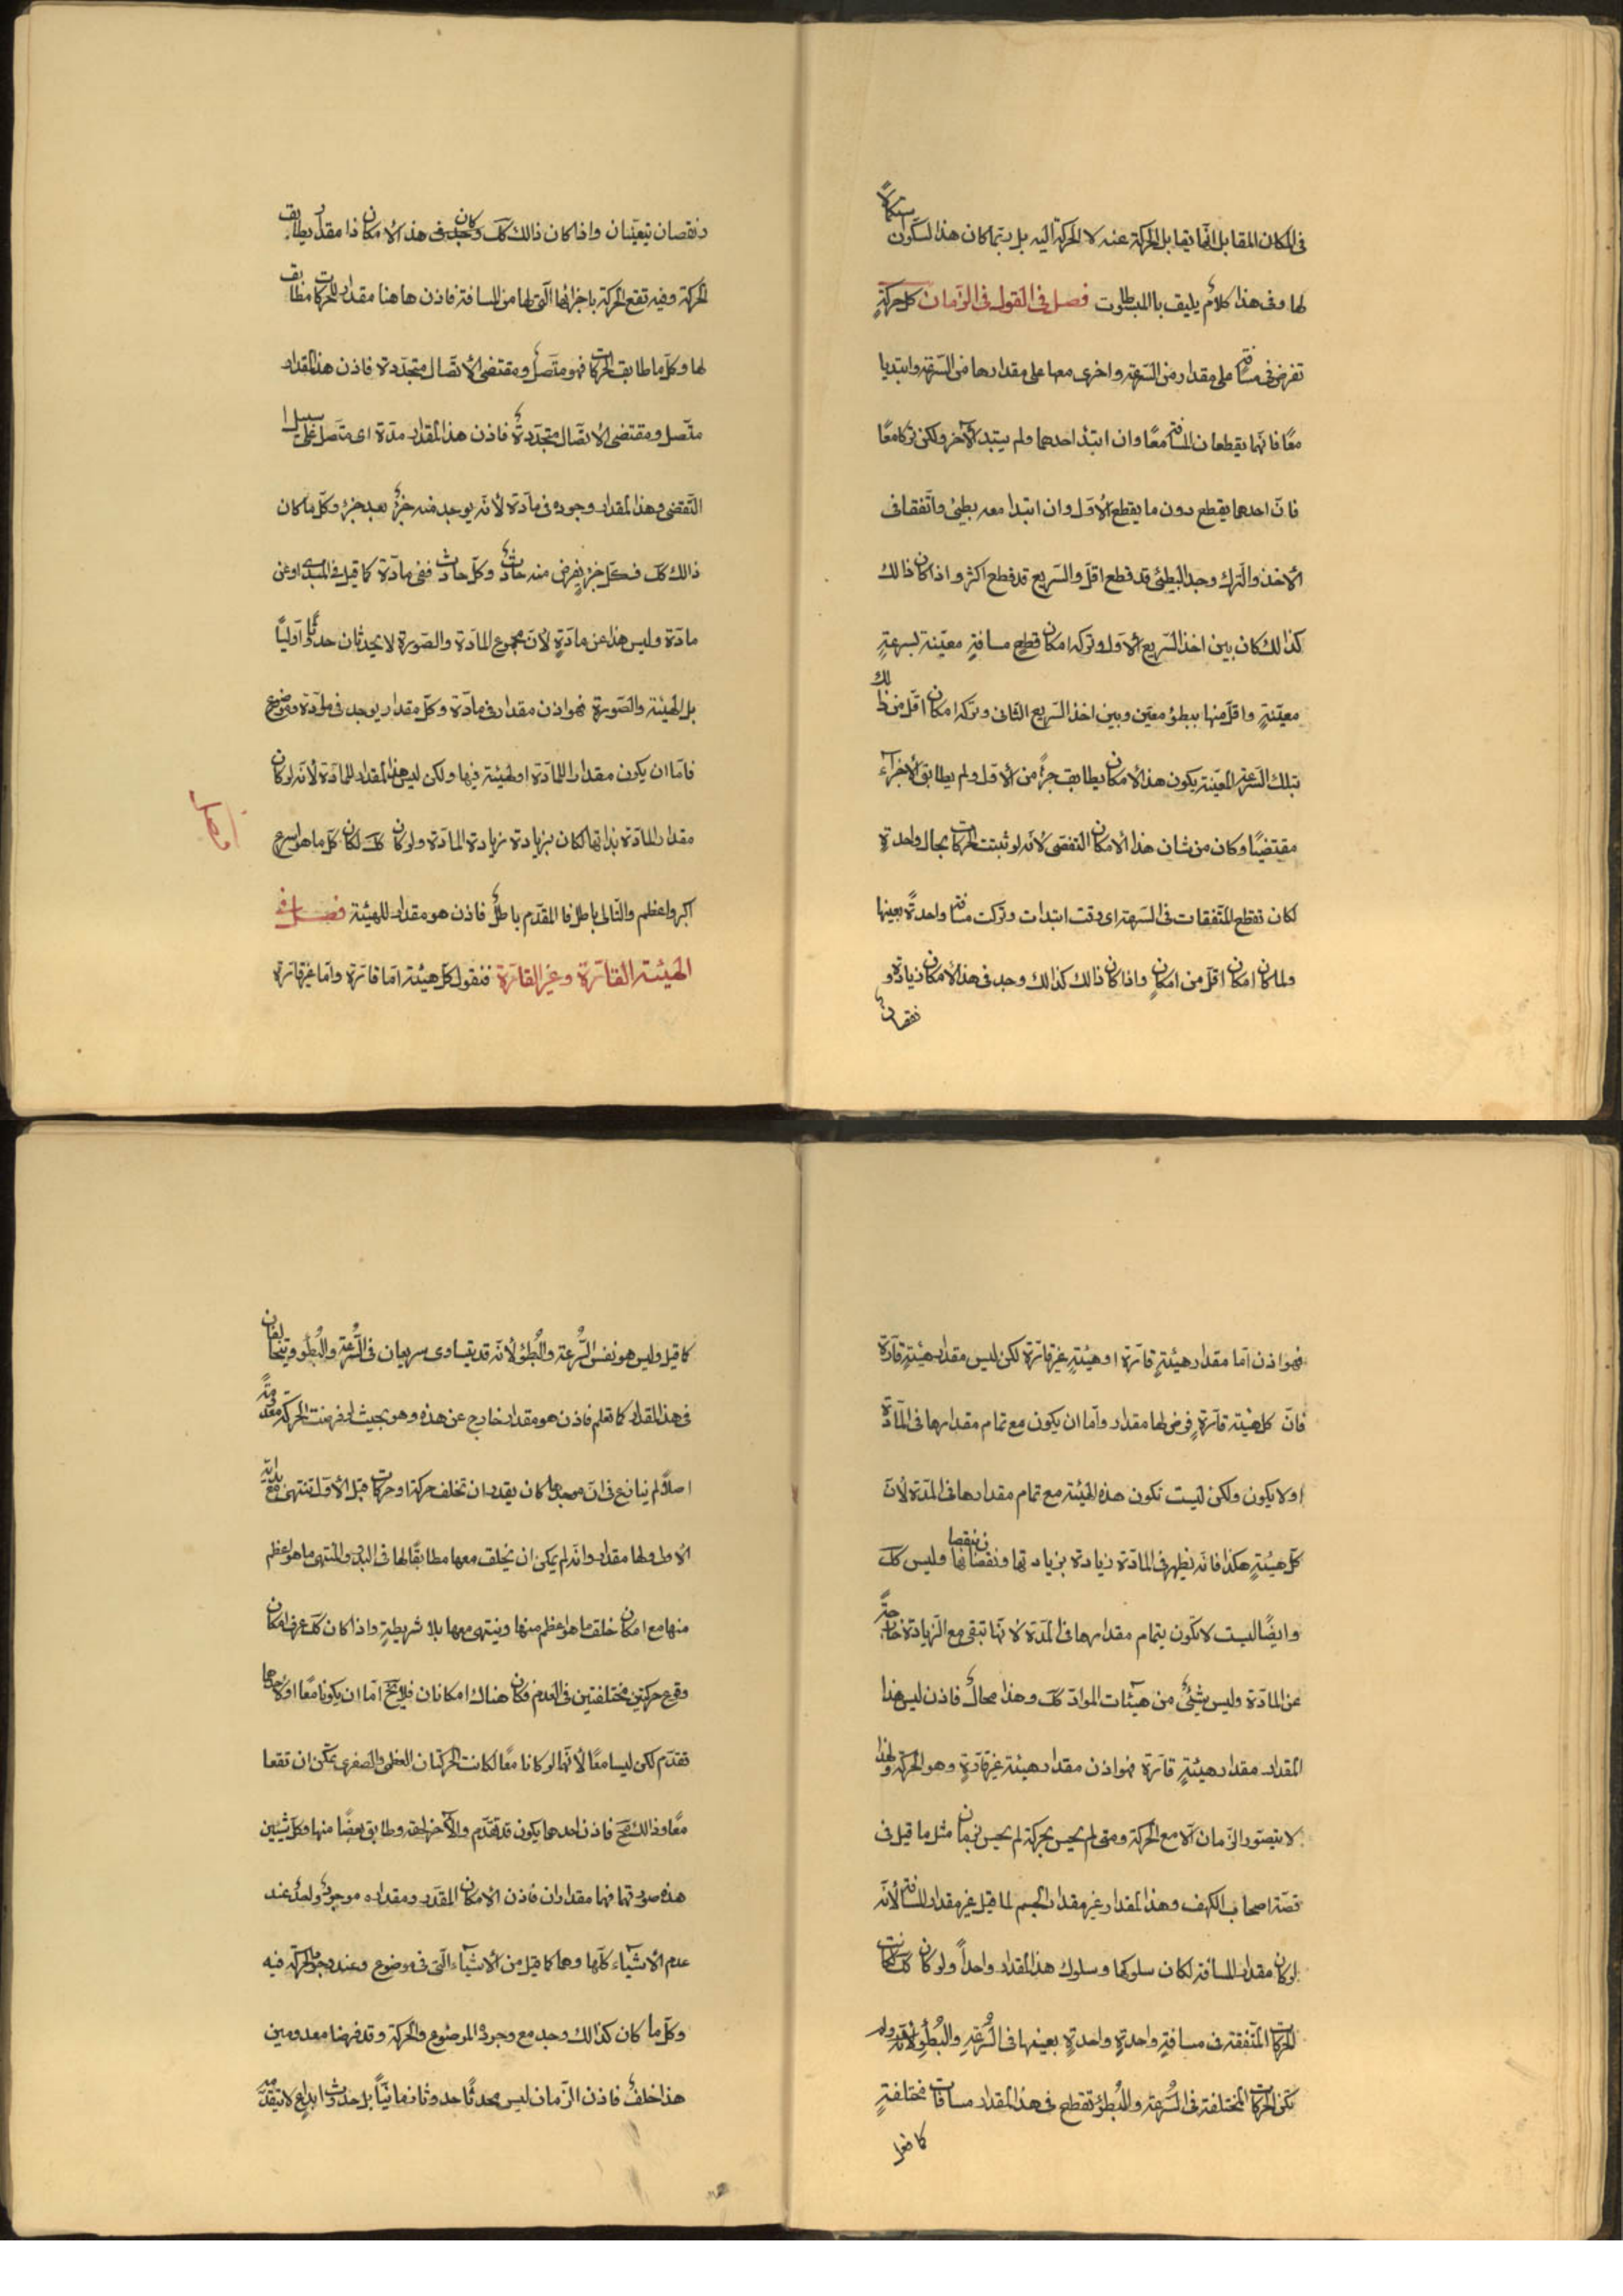 فى المكان المقابل انّما يقابل الحركة عنه لا الحركة اليه بل ربّما كان هذا لسكون استكمالاً
لها وفى هذا كلامٌ يليق باالمبسطوت فصل فى القول فى الزّمان كل حركةٍ
تفرض فى مسافة على مقدار من السّرعة واخرى معها على مقدارها من السّرعة وابتديا
معًا فانّهما يقطعان المسافة معًا وان ابتدٔ احدهما ولم يبتد الآخر ولكن تركا معًا
فانّ احدهما يقطع دون ما يقطع الأوّل وان ابتدا معه بطيئ واتّفقا فى
الأخذ والتّرك وجد البطيئ قد قطع اقلّ والسّريع قد قطع اكثر واذا كان ذالك
كذالك كان بين اخذ السّريع الأوّل وتركه امكان قطع مسافةٍ معيّنة بسرعةٍ
معيّنةٍ واقلّ منها ببطؤ معيّن وبين اخذ السّريع الثانى وتركه امكان اقلّ من ذالك
بتلك السّرعة المعيّنة يكون هذا الأمكان يطابق جزأً من الأوّل ولم يطابق الأجزآء
مقتضيًا وكان من شان هذا الأمكان التقضى لأنّه لو ثبتت الحركات بحال واحدةٍ
لكان تقطع المتّفقات فى السّرعة اى وقت ابتدات وتركت مسافة واحدةً بعينها
ولما كان امكان اقلّ من امكانٍ واذا كان ذالك كذالك وجد فى هذا الأمكان زيادة و
نقصانٌ
ونقصان يتعيّنان واذا كان ذالك كك وجد كان فى هذا الأمكان ذا مقدار يطابق
الحركة وفيه تقع الحركة باجزائها الّتى لها من المسافة فاذن هاهنا مقدار للحركات مطابق
لها وكلّ ما طابق الحركات فهو متّصلٌ ومقتضى الأتّصال متجدّدة فاذن هذا المقدار
متّصل ومقتضى الأتّصال متجدّدةٌ فاذن هذا المقدار مدّة اى متّصل على سبيل
التّقضى وهذا المقدار وجوده فى مادّة لأنّه يوجد منه جزءٌ بعد جزء وكلّ ما كان
ذالك كك فكلّ جزءٍ يفرض منه حادثٌ وكلّ حادث ففى مادّة كما قيل فى المبدى او عن
مادّة وليس هذا عن مادّةٍ لأنّ مجموع المادّة والصّورة لا يحدثان حدوثًا اوّليًّا
بل الهيئة والصّورة فهو اذن مقدار فى مادّة وكلّ مقدار يوجد فى مادّة وموضوع
فامّا ان يكون مقدارا للمادّة او لهيئة فيها ولكن ليس هذا المقدار للمادّة لأنّه لو كان
مقدار المادّة بذاتها لكان بزيادة زيادة المادّة ولو كان كك لكان كلّ ما هو اسرع
اكبر واعظم والتالى باطل فا المقدّم باطلٌ فاذن هو مقدار للهيئة فصل فى
الهيئة القآرّة وغير القارّة فنقول كلّ هيئة امّا قارّة وامّا غير قارّة
فهو اذن امّا مقدار هيئةٍ قارّة او هيئةٍ غير قارّة لكن ليس مقدار هيئةٍ قارّة
فانّ كل هيئة قارّةٍ فرض لها مقدار وامّا ان يكون مع تمام مقدارها فى المآدّة
او لا يكون ولكن ليست تكون هذه الهيئة مع تمام مقدارها فى المدّة لأنّ
كلّ هيئةٍ هكذا فانّه يظهر فى المادّة زيادة بزيادتها ونقصانها نقصان وليس كك
وايضًا ليست لا تكون بتمام مقدارها فى المدّة لأنّها تبقى مع الزّيادة خارجةً
عن المادّة وليس شيئٌ من هيئات الموادّ كك وهذا محالٌ فاذن ليس هذا
المقدار مقدار هيئةٍ قارّة فهو اذن مقدار هيئة غير قارّةٍ وهو الحركة ولهذا
لا يتصوّر الزّمان الّا مع الحركة ومتى لم يحس بحركة لم يحس بزمان مثل ما قيل فى
قصّة اصحاب الكهف وهذا المقدار غير مقدار الجسم لما قيل غير مقدار المسافة لأنّه
لو كان مقدار المسافة لكان سلوكها وسلوك هذا المقدار واحداً ولو كان كك كانت
الحركات المتّفقة فى مسافةٍ واحدةٍ واحدةٍ بعينها فى السُّرعَةِ والبُطُؤِ لأنّه ولم
تكن الحركات المختلفة فى السُّرعة والبُطُؤ تقطع فى هذا المقدار مسافات مختلفةٍ
كما قيل
كما قيل وليس هو نفس السُّرعة والبُطؤ لأنّه قد يتساوى سريعان فى السُّرعة والبُطُؤ ويتخالفان
فى هذا المقدار كما تعلم فاذن هو مقدار خارج عن هذه وهو بحيث لو فرضت الحركة معدومةً
اصلاً لم نمانع فى انّ موجدها كان يقدر ان تخلف حركة او حركات قبل الأوّل تنتهى مع بداية
الأول ولها مقدار وانّه لم يمكن ان يخلف معها مطابقًا لها فى البدو والمنتهى ما هو اعظم
منها مع امكان خلقت ما هو اعظم منها وينتهى معها بلا شريطةٍ واذا كان كك عرف امكان
وقوع حركتين مختلفتين فى العدم فكان هناك امكانان فلا يخ امّا ان يكونا معًا او لاحدهما
تقدّم لكن ليسا معًا لأنّهما لو كانا معًا لكانت الحركتان العظمى والصغرى يمكن ان تقعا
معًا وذالك مح فاذن احدهما يكون قد تقدّم والآخر لحقه وطابق بعضًا منها وكلّ شيئين
هذه صورتهما فهما مقداران فاذن الأمكان المقدّر ومقداره موجودٌ واحدٌ عند
عدم الأشيآء كلّها وهما كما قيل من الأشيآء الّتى فى موضوع وعند وجود الحركة فيه
وكلّ ما كان كذالك وجد مع وجود الموضوع والحركة وقد فرضنا معدومين
هذا خلفٌ فاذن الزّمان ليس محدثًا حدوثًا زمانيّاً بل حدوث ابداع لا يتقدّمه